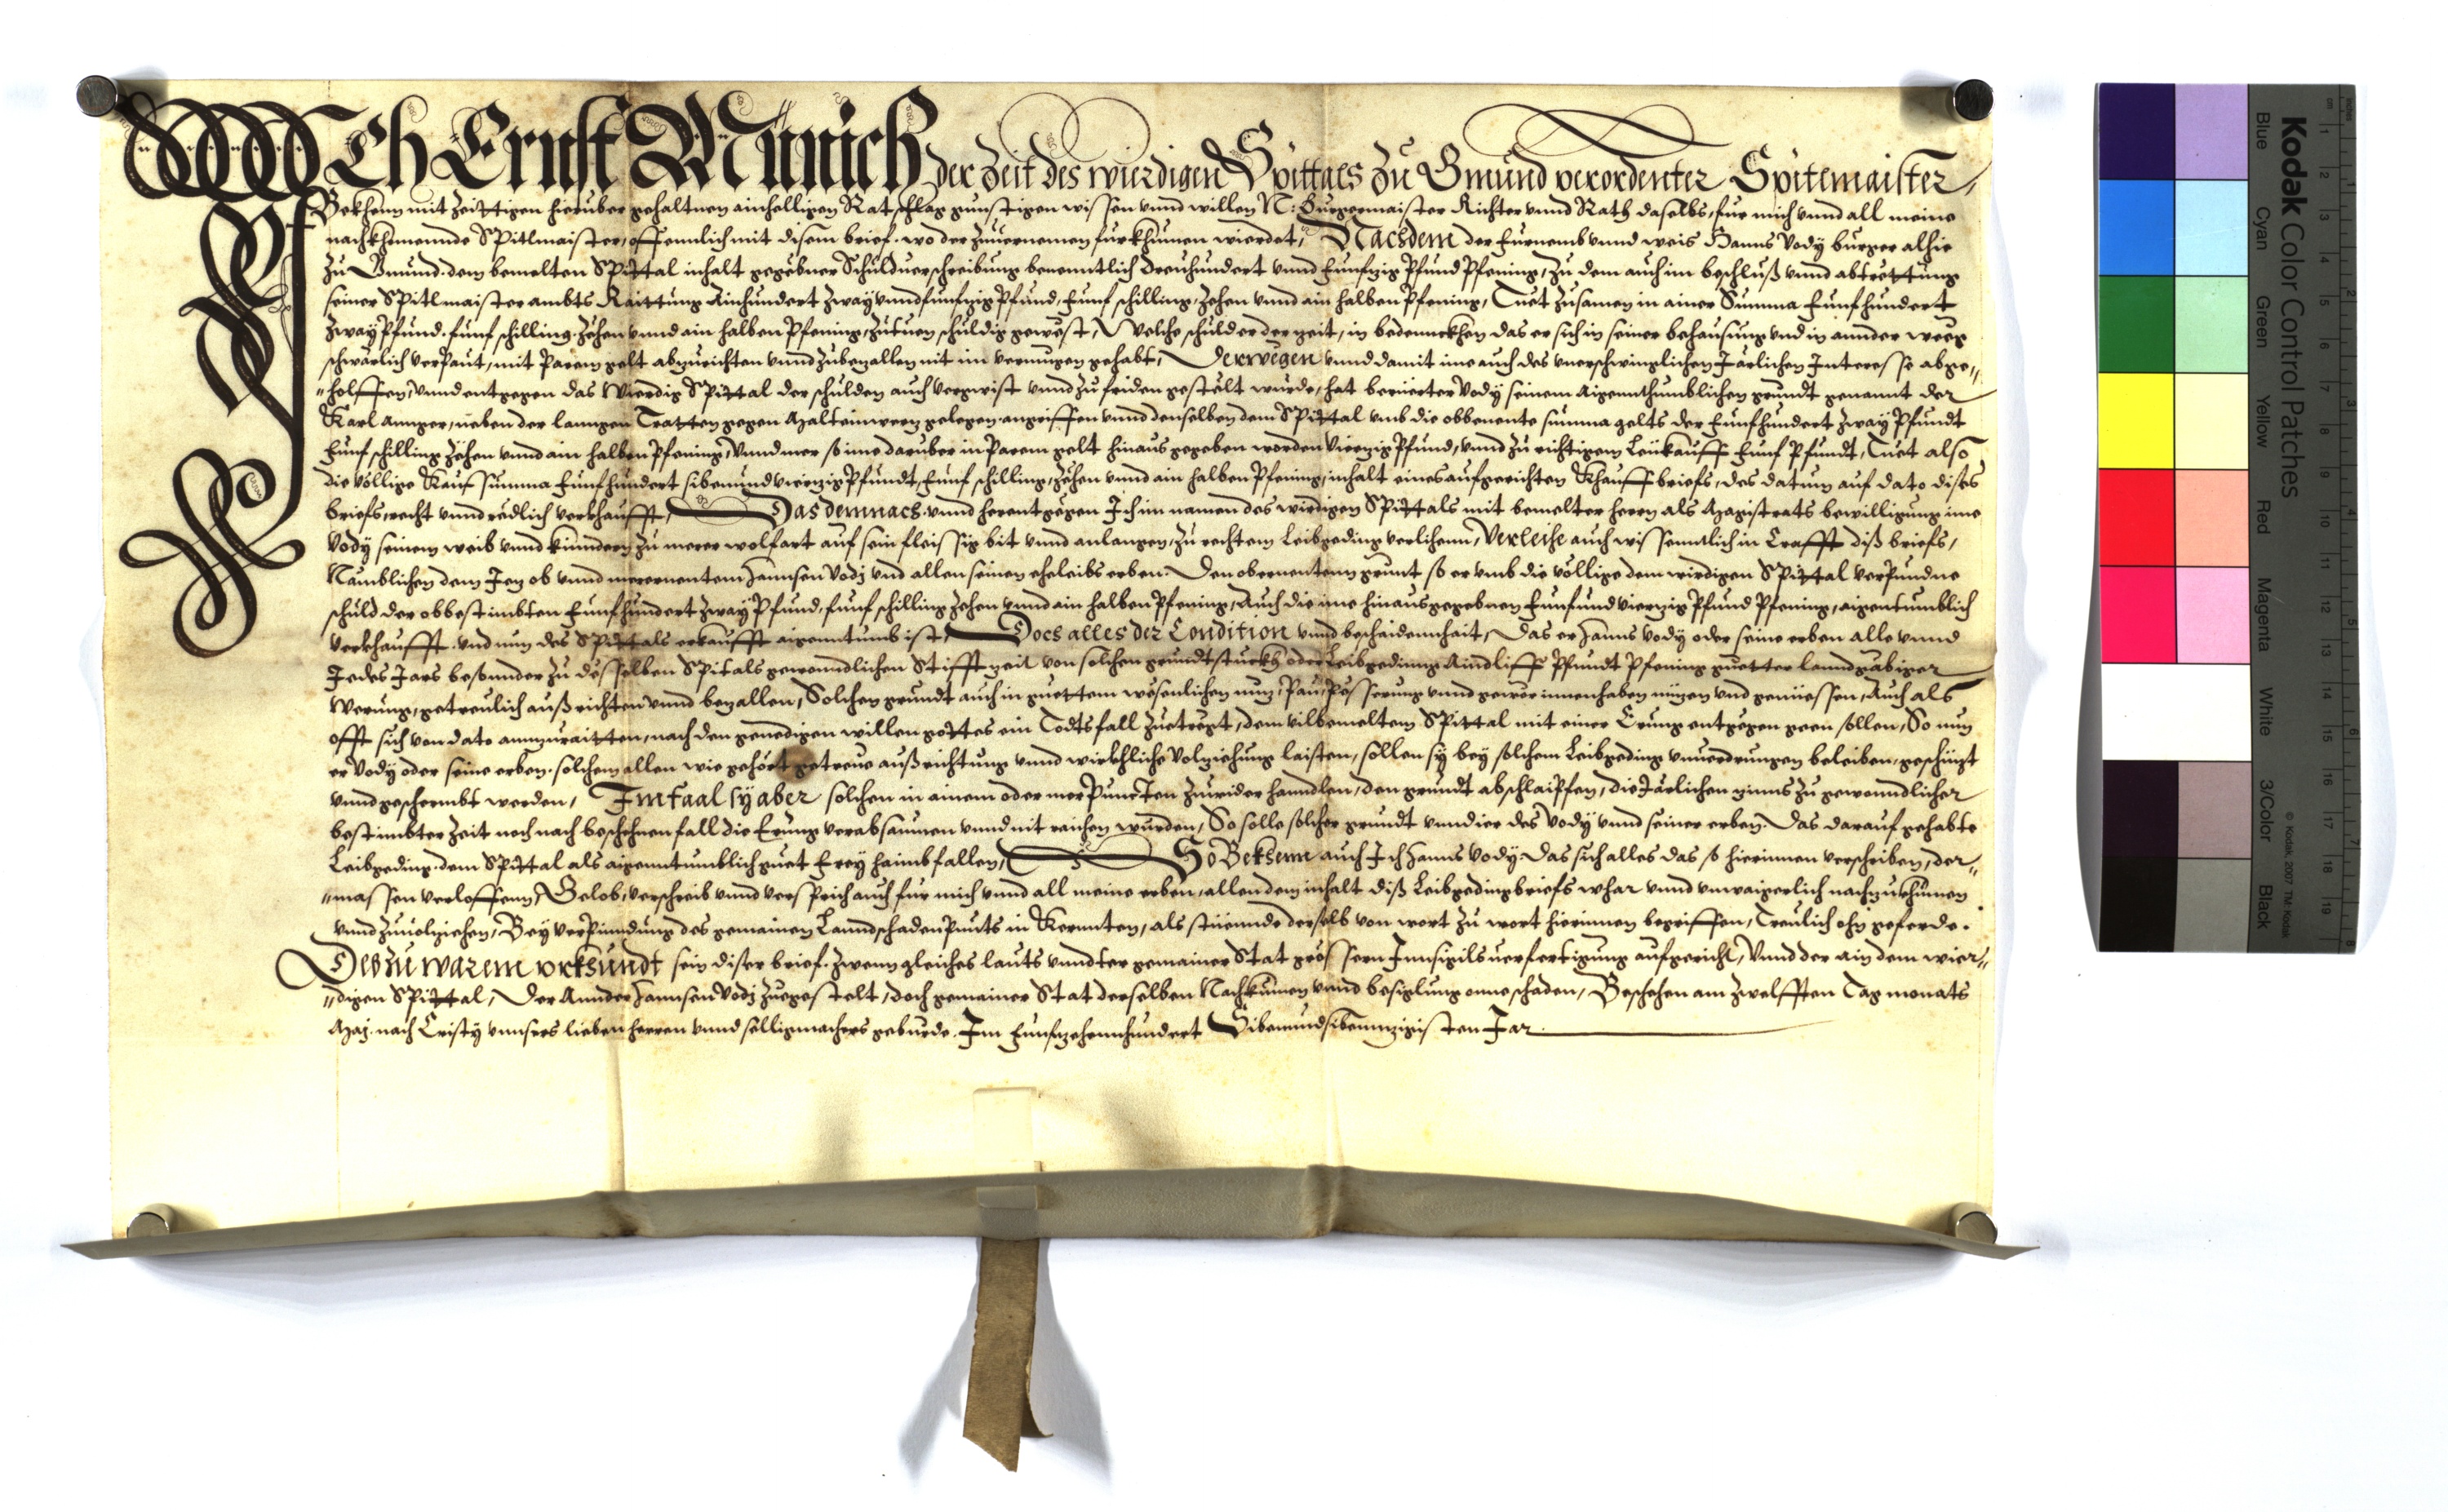 ICh Ernst Münich der Zeit des wierdigen Spittals zu Gmünd verordenter Spitemaister,
Bekhenn mit zeittigen hierüber gehaltnen ainhelligen Ratschlag günstigen wissen vnnd willen N: Burgermaister Richter vnnd Rath daselbs, fur mich vnnd all meine
nachkhomennde Spitlmaister, offennlich mit disem brief, wo der zuuernemen fürkhumen wierdet, Nachdem der Furnemb vnnd weis Hanns Vodÿ burger alhie
zu Gmünd, dem bemelten Spittal inhalt gegebner Schuldverschreibung benenntlich dreuhundert vnnd Funfzig Pfund Pfening, zu dem auch im beschluß vnnd abtrettung
seiner Spitlmaister ambts Raittung Ainhundert Zwaÿ vnnd funfzig Pfund, Funf schilling, zehen vnnd ain halben Pfening, Tuet zusamen in ainer Summa Funfhundert
Zwaÿ Pfund, funf schilling, zehen vnnd ain halben Pfening, zutuen schuldig gewest, Welche schuld er der zeit, in bedennckhen das er sich in seiner behausung vnd in annder weeg
schwärlich verpaut, mit Parem gelt abzurichten vnnd zubezallen nit im vermugen gehabt, Derwegen vnnd damit ime auch des vnerschwinglichen Järlichen Interesse abge„
„holffen, vnnd entgegen das Wierdig Spittal der schulden auch vergwist vnnd zu friden gestelt wurde, hat beruerter Vodÿ seinem Aigenthumblichen grundt genannt der
Karl annger, neben der lanngen Tratten gegen Malenteinwerz gelegen angriffen vnnd denselben dem Spittal vmb die obbenente summa gelts der Funfhundert zwaÿ Pfundt
Funf schilling zehen vnnd ain halben Pfening, Vnnd mer so ime daruber in Parem gelt hinaus gegeben worden Vierzig Pfund, vnnd zu richtigem Leukauff Funf Pfundt, Tuet also
die völlige Kauf Summa Funfhundert sibenundvierzig Pfundt, Funf schilling, zehen vnnd ain halben Pfening, inhalt eines aufgerichten Khauffbriefs, des datum auf dato dises
briefs, recht vnnd redlich verkhaufft, Das demnach vnnd herentgegen Ich im namen des wirdigen Spittals mit bemelter herrn als Magistrats bewilligung ime
Vodÿ seinem weib vnnd kinndern zu merer wolfart auf sein fleissig bit vnnd anlangen, zu rechtem Leibgeding verlihenn, Verleihe auch wissenntlich in Crafft diß briefs,
Nämblichen dem Jez ob vnnd Hannsen Vodj vnd allen seinen eheleibs erben. Den obernenten grunt so er vmb die völlige dem wirdigen Spittal verpundne
schuld der obbestimbten Funfhundert zwaÿ Pfund, funf schilling zehen vnnd ain halben Pfening, Auch die ime hinausgegebnen Funfundvierzig Pfund Pfening, aigentumblich
verkhaufft, vnd nun des Spittals erkaufft aigenntumb ist, Doch alles der Condition vnnd beschaidennhait, Das er Hanns Vodÿ oder seine erben alle vnnd
Jedes Jars besonnder zu desselben Spitals gewonndlichen Stifftzeit von solchen grundtstuckh oder Leibgeding Aindliff Pfundt Pfening guetter lanndgäbiger
Werung, getreulich außrichten vnnd bezallen, Solchen grundt auch in guettem wesenlichen nuz, Pau, Pesserung vnnd gewör innenhaben nüzen vnd geniessen, Auch als
offt sich von dato anzuraitten, nach den genedigen willen gottes ein Todtsfall zuetregt, dem vilbemeltem Spittal mit einer Erung entgegen geen sollen, So nun
er Vodÿ oder seine erben, solchem allen wie gehört getreue außrichtung vnnd wirkhliche Volziehung laisten, sollen sÿ beÿ solchem Leibgeding vnuerdrungen beleiben, geschüzt
vnnd geschermbt werden, Im faal sÿ aber solchen in ainem oder mer Puncten zuwider hanndlen, den grundt abschlaipfen, die Järlichen zinns zu gewonndlicher
bestimbter Zeit noch nach beschehnen fall die Erung verabsaumen vnnd nit raichen wurden, So solle solcher grundt vnnd ier des Vodÿ vnnd seiner erben. Das darauf gehabte
Leibgeding, dem Spittal als aigenntumblich guet Freÿ haimbfallen, So Bekhenn auch Ich Hanns Vodÿ, Das sich alles das so hierinnen verschriben, der„
„massen verloffenn, Gelob, verschreib vnnd versprich auch fur mich vnnd all meine erben, allen dem inhalt diß Leibgedingbriefs whar vnnd vnwaigerlich nachzukhumen
vnnd zuuolziehen, Beÿ verpindung des gemainen Lanndschadenpunts in Kernnten, als stuennde derselb von wort zu wort hierinnen begriffen, Treulich ohn geferde.
Des zu warem vrkhundt sein diser brief, zwenn gleiches lauts vnndter gemainer Stat grössern Innsigils verfertigung aufgericht, Vnnd der ain dem wier„
„digen Spittal, Der Annder Hannsen Vodj zuegestelt, doch gemainer Stat derselben Nachkumen vnnd besiglung one schaden, Beschehen am zwelfften Tag monats
Maj. nach Cristÿ vnnsers lieben herren vnnd sellig­machers geburde. Im Funfzehenhundert Sibenundsibennzigisten Jar.
Kodak Color Control Patches
Blue Cyan Green Yellow Red Magenta White 3/Color Black
© Kodak, 2007 TM: Kodak